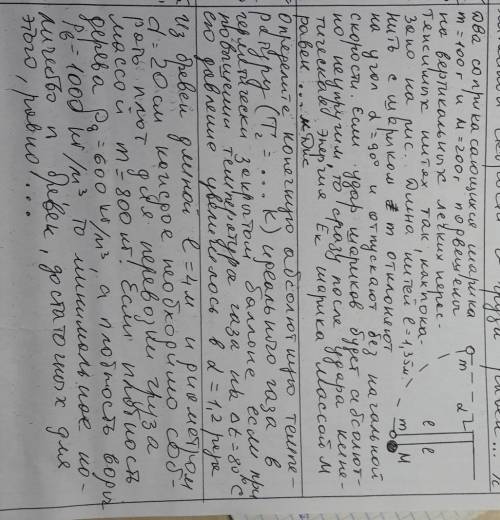 Два соприкасающихся шарика
m = 100 г и M = 200 г, подвешены
на вертикальных легких нерас-
тяжимых нитях так, как пока-
зано на рис. Длина нитей ℓ = 1,35 м.
нить с шариком m отклоняют
на угол α = 90° и отпускают без начальной
скорости. Если удар шариков будет абсолют-
но неупругим, то сразу после удара кине-
тическая энергия Ek шарика массой M
равна ... мДж
m
α
ℓ
ℓ
m
M
Определите конечную абсолютную темпе-
ратуру (T₂ = ... К) идеального газа в
герметически закрытом баллоне, если при
повышении температура газа на Δt = 80°C
его давление увеличилось в α = 1,2 раза
Из бревен длиной ℓ = 4 м и диаметром
d = 20 см необходимо соб-
рать плот для перевозки груза
массой m = 800 кг. Если плотность
дерева ρд = 600 кг/м³, а плотность воды
ρв = 1000 кг/м³ то минимальное ко-
личество n бревен, достаточных для
этого, равно ...